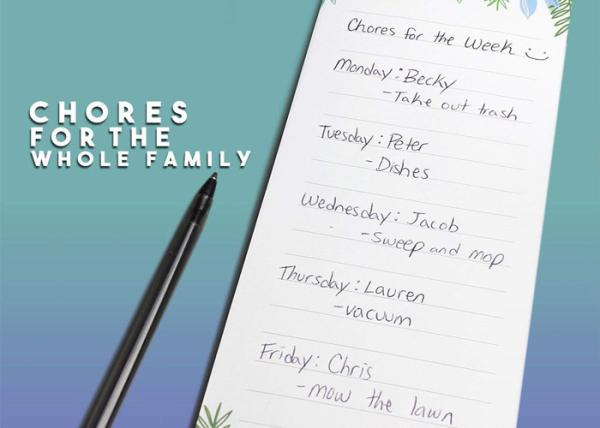 CHORES
FOR THE
WHOLE FAMILY
Chores for the Week :)
Monday: Becky
- Take out trash
Tuesday: Peter
- Dishes
Wednesday: Jacob
- Sweep and mop
Thursday: Lauren
- vacuum
Friday: Chris
- mow the lawn